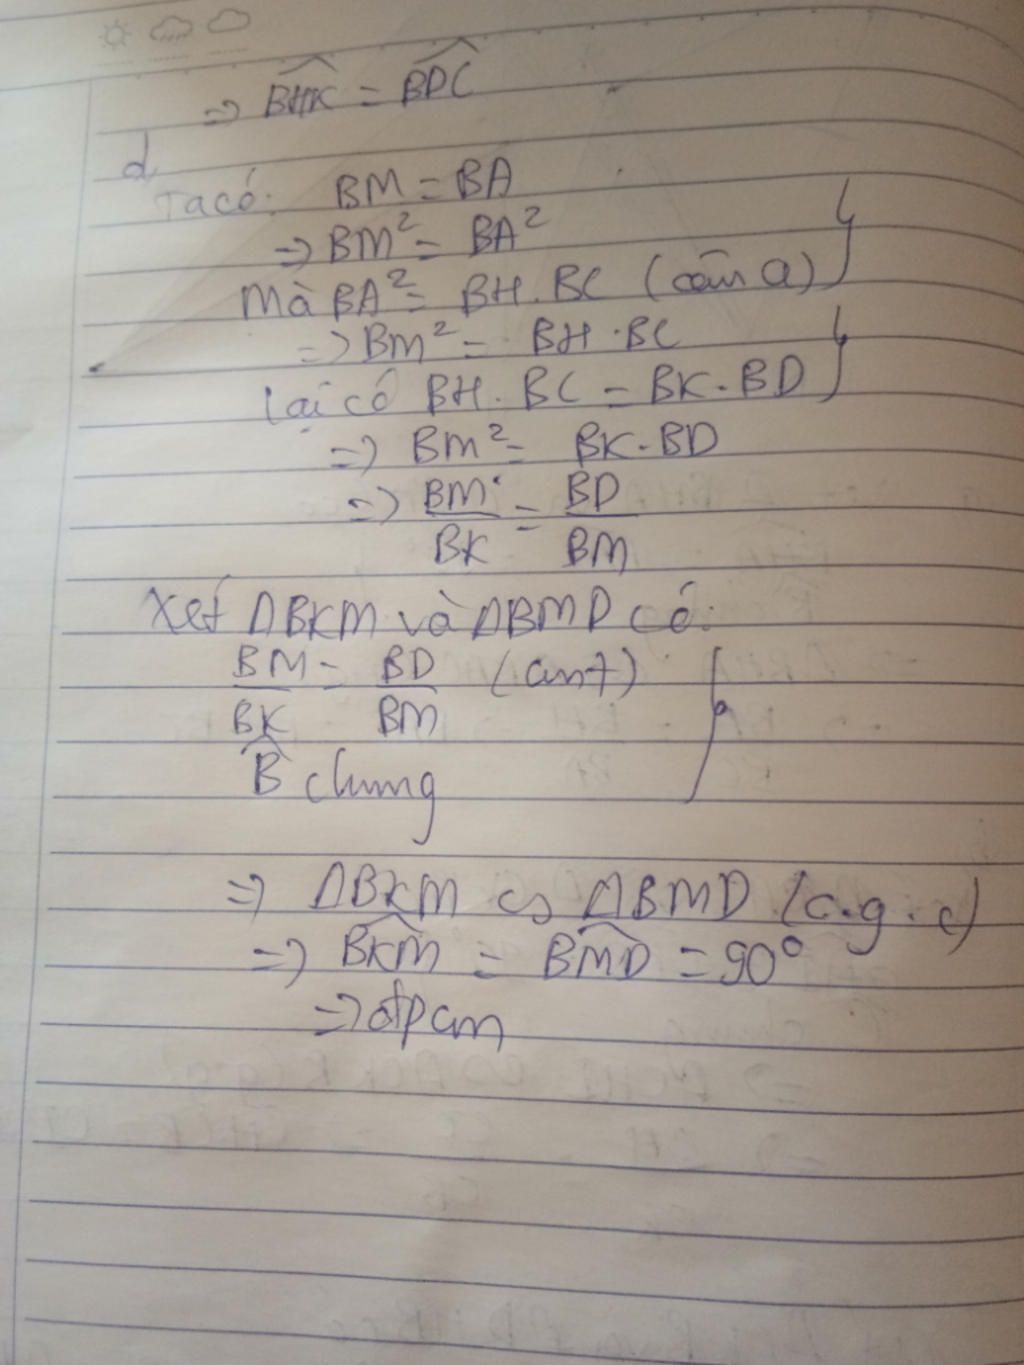 => BHK = BDC
d,
Ta có: BM = BA
=> BM² = BA²
Mà BA² = BH.BC (câu a)
=> BM² = BH.BC
lại có BH.BC = BK.BD
=> BM² = BK.BD
=> BM/BK = BD/BM
Xét ΔBKM và ΔBMD có:
BM/BK = BD/BM (cmt)
B̂ chung
=> ΔBKM ∽ ΔBMD (c.g.c)
=> BKM = BMD = 90°
=> đpcm